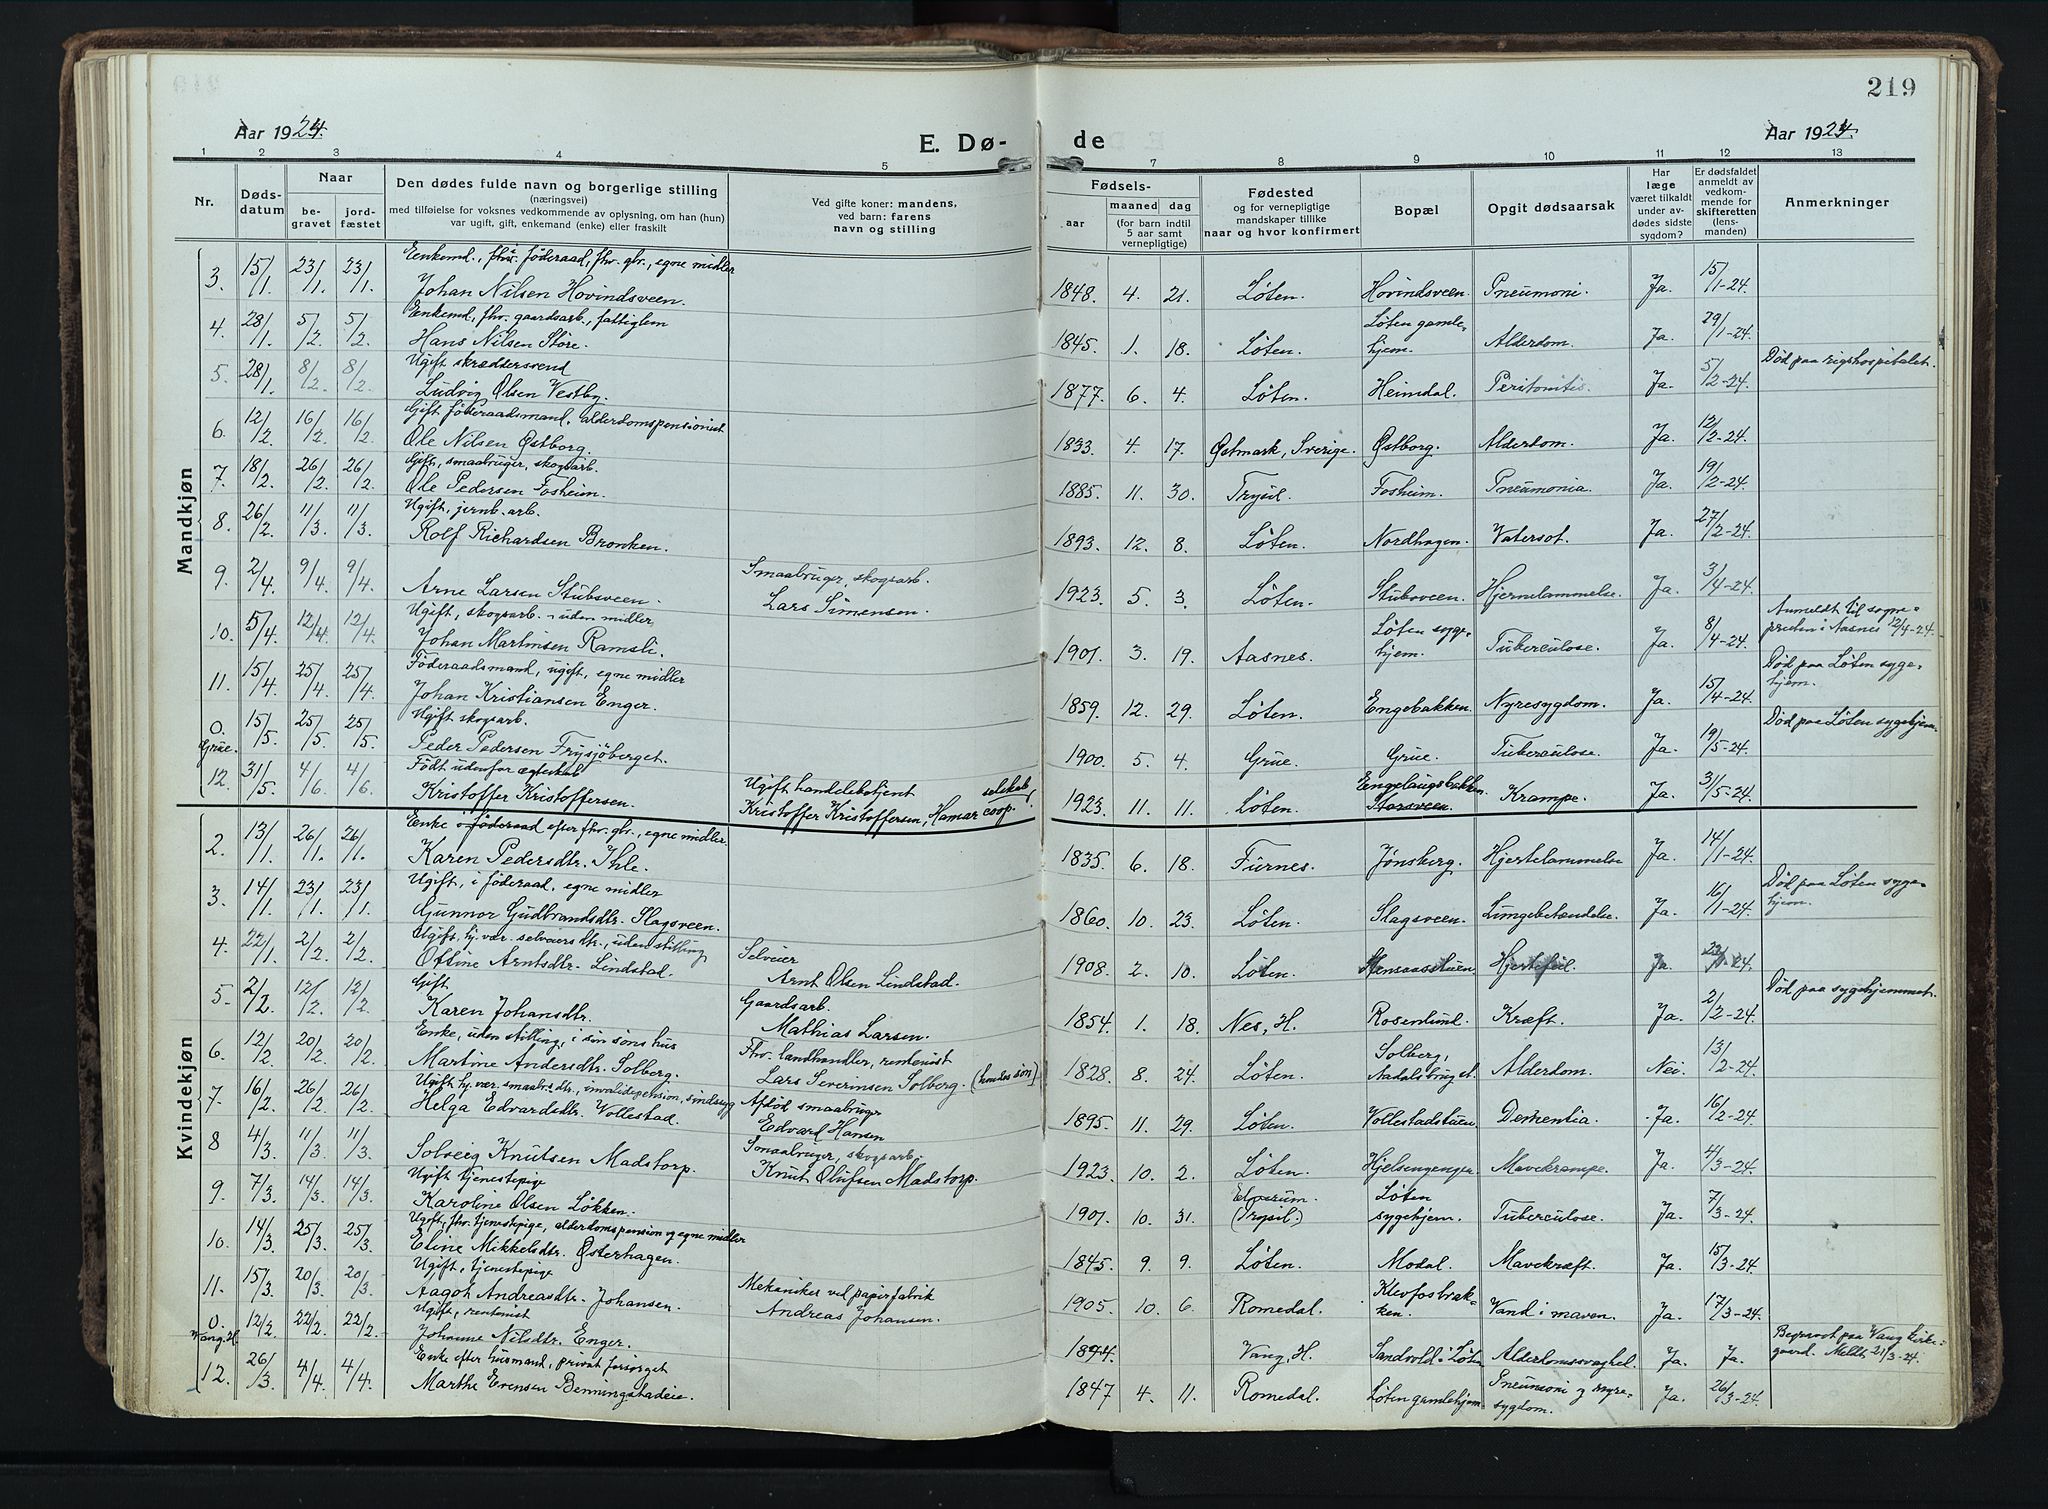 219
Aar 1924.
E. Dø-
de
Aar 1924.
1 2 3 4 5 7 8 9 10 11 12 13
Nr.
Døds-
datum
Naar
be-
gravet
jord-
fæstet
Den dødes fulde navn og borgerlige stilling
(næringsvei)
med tilføielse for voksnes vedkommende av oplysning, om han (hun)
var ugift, gift, enkemand (enke) eller fraskilt
Ved gifte koner: mandens,
ved barn: farens
navn og stilling
Fødsels-
aar
maaned dag
(for barn indtil
5 aar samt
vernepligtige)
Fødested
og for vernepligtige
mandskaper tillike
naar og hvor konfirmert
Bopæl
Opgit dødsaarsak
Har
læge
været tilkaldt
under av-
dødes sidste
sygdom?
Er dødsfaldet
anmeldt av
vedkom-
mende for
skifteretten
(lens-
manden)
Anmerkninger
Mandkjøn
Enkemd., fhv. føderaad, fhv. gbr., egne midler
3. 15/1. 23/1. 23/1. Johan Nilsen Hovindsveen. 1848. 4. 21. Løten. Hovindsveen. Pneumoni. Ja. 15/1-24.
Enkemd., fhv. gaardsarb., fattiglem
4. 28/1. 5/2. 5/2. Hans Nilsen Støre. 1845. 1. 18. Løten. Løten gamle-
hjem. Alderdom. Ja. 29/1-24.
Ugift skræddersvend
5. 28/1. 8/2. 8/2. Ludvig Olsen Vestby. 1877. 6. 4. Løten. Heimdal. Peritonitis. Ja. 5/2-24. Død paa rigshospitalet.
Gift føderaadsmand, alderdomspensionist
6. 12/2. 16/2. 16/2. Ole Nilsen Østborg. 1833. 4. 17. Østmark, Sverige. Østborg. Alderdom. Ja. 12/2-24.
Gift, smaabruger, skogsarb.
7. 18/2. 26/2. 26/2. Ole Pedersen Fosheim. 1885. 11. 30. Trysil. Fosheim. Pneumonia. Ja. 19/2-24.
Ugift, jernb. arb.
8. 26/2. 11/3. 11/3. Rolf Richardsen Bronken. 1893. 12. 8. Løten. Nordhagen. Vatersot. Ja. 27/2-24.
Smaabruger, skogsarb.
9. 2/4. 9/4. 9/4. Arne Larsen Stubsveen. Lars Simensen. 1923. 5. 3. Løten. Stubsveen. Hjernelammelse. Ja. 3/4-24.
Ugift, skogsarb. uden midler
10. 5/4. 12/4. 12/4. Johan Martinsen Ramsli. 1901. 3. 19. Aasnes. Løten syge-
hjem. Tuberculose. Ja. 8/4-24. Anmeldt til sogne-
presten i Aasnes 12/4-24.
Føderaadsmand, ugift, egne midler
11. 15/4. 25/4. 25/4. Johan Kristiansen Enger. 1859. 12. 29. Løten. Engebakken. Nyresygdom. Ja. 15/4-24. Død paa Løten syge-
hjem.
Ugift skogsarb.
0. Grue. 15/5. 25/5. 25/5. Peder Pedersen Frysjøberget. 1900. 5. 4. Grue. Grue. Tuberculose. Ja. 19/5-24. Død paa Løten sygehjem.
Født udenfor egteskab
12. 31/5. 4/6. 4/6. Kristoffer Kristoffersen. Ugift handelsbetjent
Kristoffer Kristoffersen, Hamar coop. selskab. 1923. 11. 11. Løten. Engelaugsbakken
Storsveen. Krampe. Ja. 31/5-24.
Kvindekjøn
Enke i føderaad efter fhv. gbr., egne midler
2. 13/1. 26/1. 26/1. Karen Pedersdtr. Ihle. 1835. 6. 18. Furnes. Jønsberg. Hjertelammelse Ja. 14/1-24.
Ugift, i føderaad, egne midler
3. 14/1. 23/1. 23/1. Gunnor Gudbrandsdtr. Slagsveen. 1860. 10. 23. Løten. Slagsveen. Lungebetændelse. Ja. 16/1-24. Død paa Løten syge-
hjem.
Ugift, hj. vær. selveiers dtr., uden stilling
4. 22/1. 2/2. 2/2. Otline Arntsdtr. Lindstad. Selveier
Arnt Olsen Lindstad. 1908. 2. 10. Løten. Stensaasstuen Hjertefeil. Ja. 22/1-24.
Gift
5. 2/2. 12/2. 12/2. Karen Johansdtr. Gaardsarb.
Mathias Larsen. 1854. 1. 18. Nes, H. Rosenlund. Kræft. Ja. 2/2-24. Død paa sygehjemmet.
Enke, uden stilling, i sin søns hus
6. 12/2. 20/2. 20/2. Martine Andersdtr. Solberg. Fhv. landhandler, rentenist
Lars Severinsen Solberg. (hendes søn) 1828. 8. 24. Løten. Solberg,
Aadalsbruget. Alderdom. Nei. 13/2-24.
Ugift hj. vær. smaabr. dtr., invalidepension, sindssyg
7. 16/2. 26/2. 26/2. Helga Edvardsdtr. Vollestad. Afdød smaabruger
Edvard Hansen 1895. 11. 29. Løten. Vollestadstuen Dementia. Ja. 16/2-24.
8 4/3. 11/3. 11/3. Solveig Knutsen Madstorp. Smaabruger, skogsarb.
Knut Olufsen Madstorp. 1923. 10. 2. Løten. Hjelsengenger. Mavekrampe. Ja. 4/3-24.
Ugift tjenestepige
9. 7/3. 14/3. 14/3. Karoline Olsen Løkken. 1901. 10. 31. Elverum.
(Trysil.) Løten
sygehjem. Tuberculose. Ja. 7/3-24.
Ugift, fhv. tjenestepige, alderdomspension og egne midler
10. 14/3. 25/3. 25/3. Eline Mikkelsdtr. Østerhagen. 1845. 9. 9. Løten. Modal. Mavekræft. Ja. 15/3-24.
Ugift, tjenestepige
11. 15/3. 20/3. 20/3. Aagot Andreasdtr. Johansen. Mekaniker ved papirfabrik
Andreas Johansen. 1905. 10. 6. Romedal. Klevfosbrak-
ken. Vand i maven. Ja. 17/3-24.
Ugift, rentenist
0. Vang, H. 12/2. 22/2. 22/2. Johanne Nilsdtr. Enger. 1844. Vang, H. Sandvold i Løten Alderdomssvaghet. Ja. Ja. Begravet paa Vang kirke-
gaard. Meldt 21/3-24.
Enke efter husmand, privat forsørget
12. 26/3. 4/4. 4/4. Marthe Evensen Benningstadeie. 1847 4. 11. Romedal. Løten gamlehjem Pneumoni og nyre-
sygdom. Ja. 26/3-24.